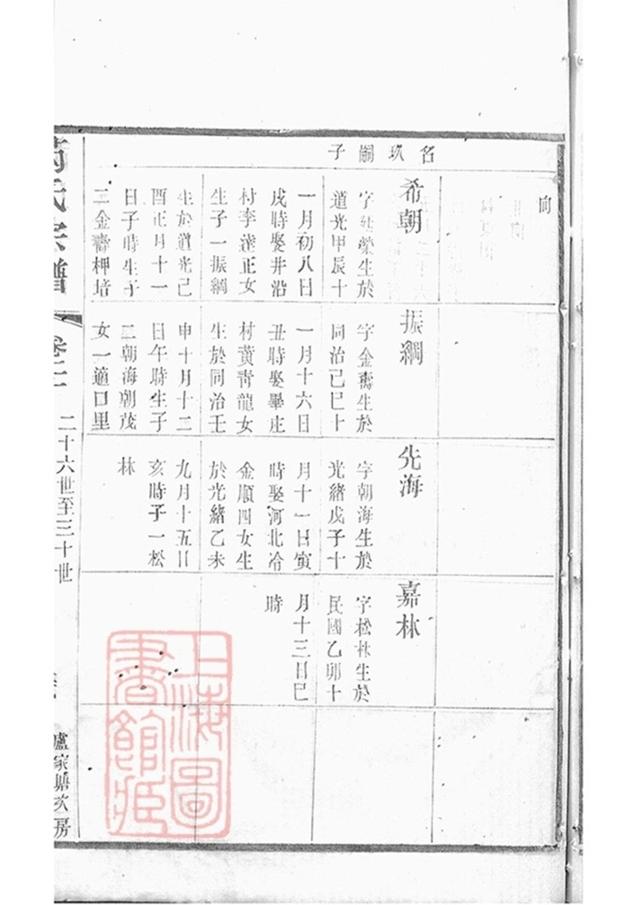 向
名玖嗣子
希朝
字廷榮生於
道光甲辰十
一月初八日
戌時娶井沿
村李達正女
生子一振綱
生於道光己
酉正月十一
日子時生子
二金壽柙培
振綱
字金壽生於
同治己巳十
一月十六日
丑時娶畢庄
村黄青龍女
生於同治壬
申十月十二
日午時生子
二朝海朝茂
女一適口里
先海
字朝海生於
光緒戊子十
月十一日寅
時娶河北冷
金順四女生
於光緒乙未
九月十五日
亥時子一松
林
嘉林
字松林生於
民國乙卯十
月十三日巳
時
氏宗譜
卷二
二十六世至三十世
盧家塘玖房
上海圖書館藏